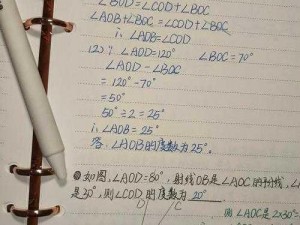 ∠BOD=∠COD+∠BOC
∠AOB+∠BOC=∠COD+∠BOC
∴∠AOB=∠COD
(2)∵∠AOD=120° ∠BOC=70°
∠AOD-∠BOC
=120°-70°
=50°
50°÷2=25°
∴∠AOB=25°
答:∠AOB的度数为25°.
如图,∠AOD=80°,射线OB是∠AOC的平分线,∠
是30°,则∠COD的度数为 20°
D C
∠AOC是2×30=